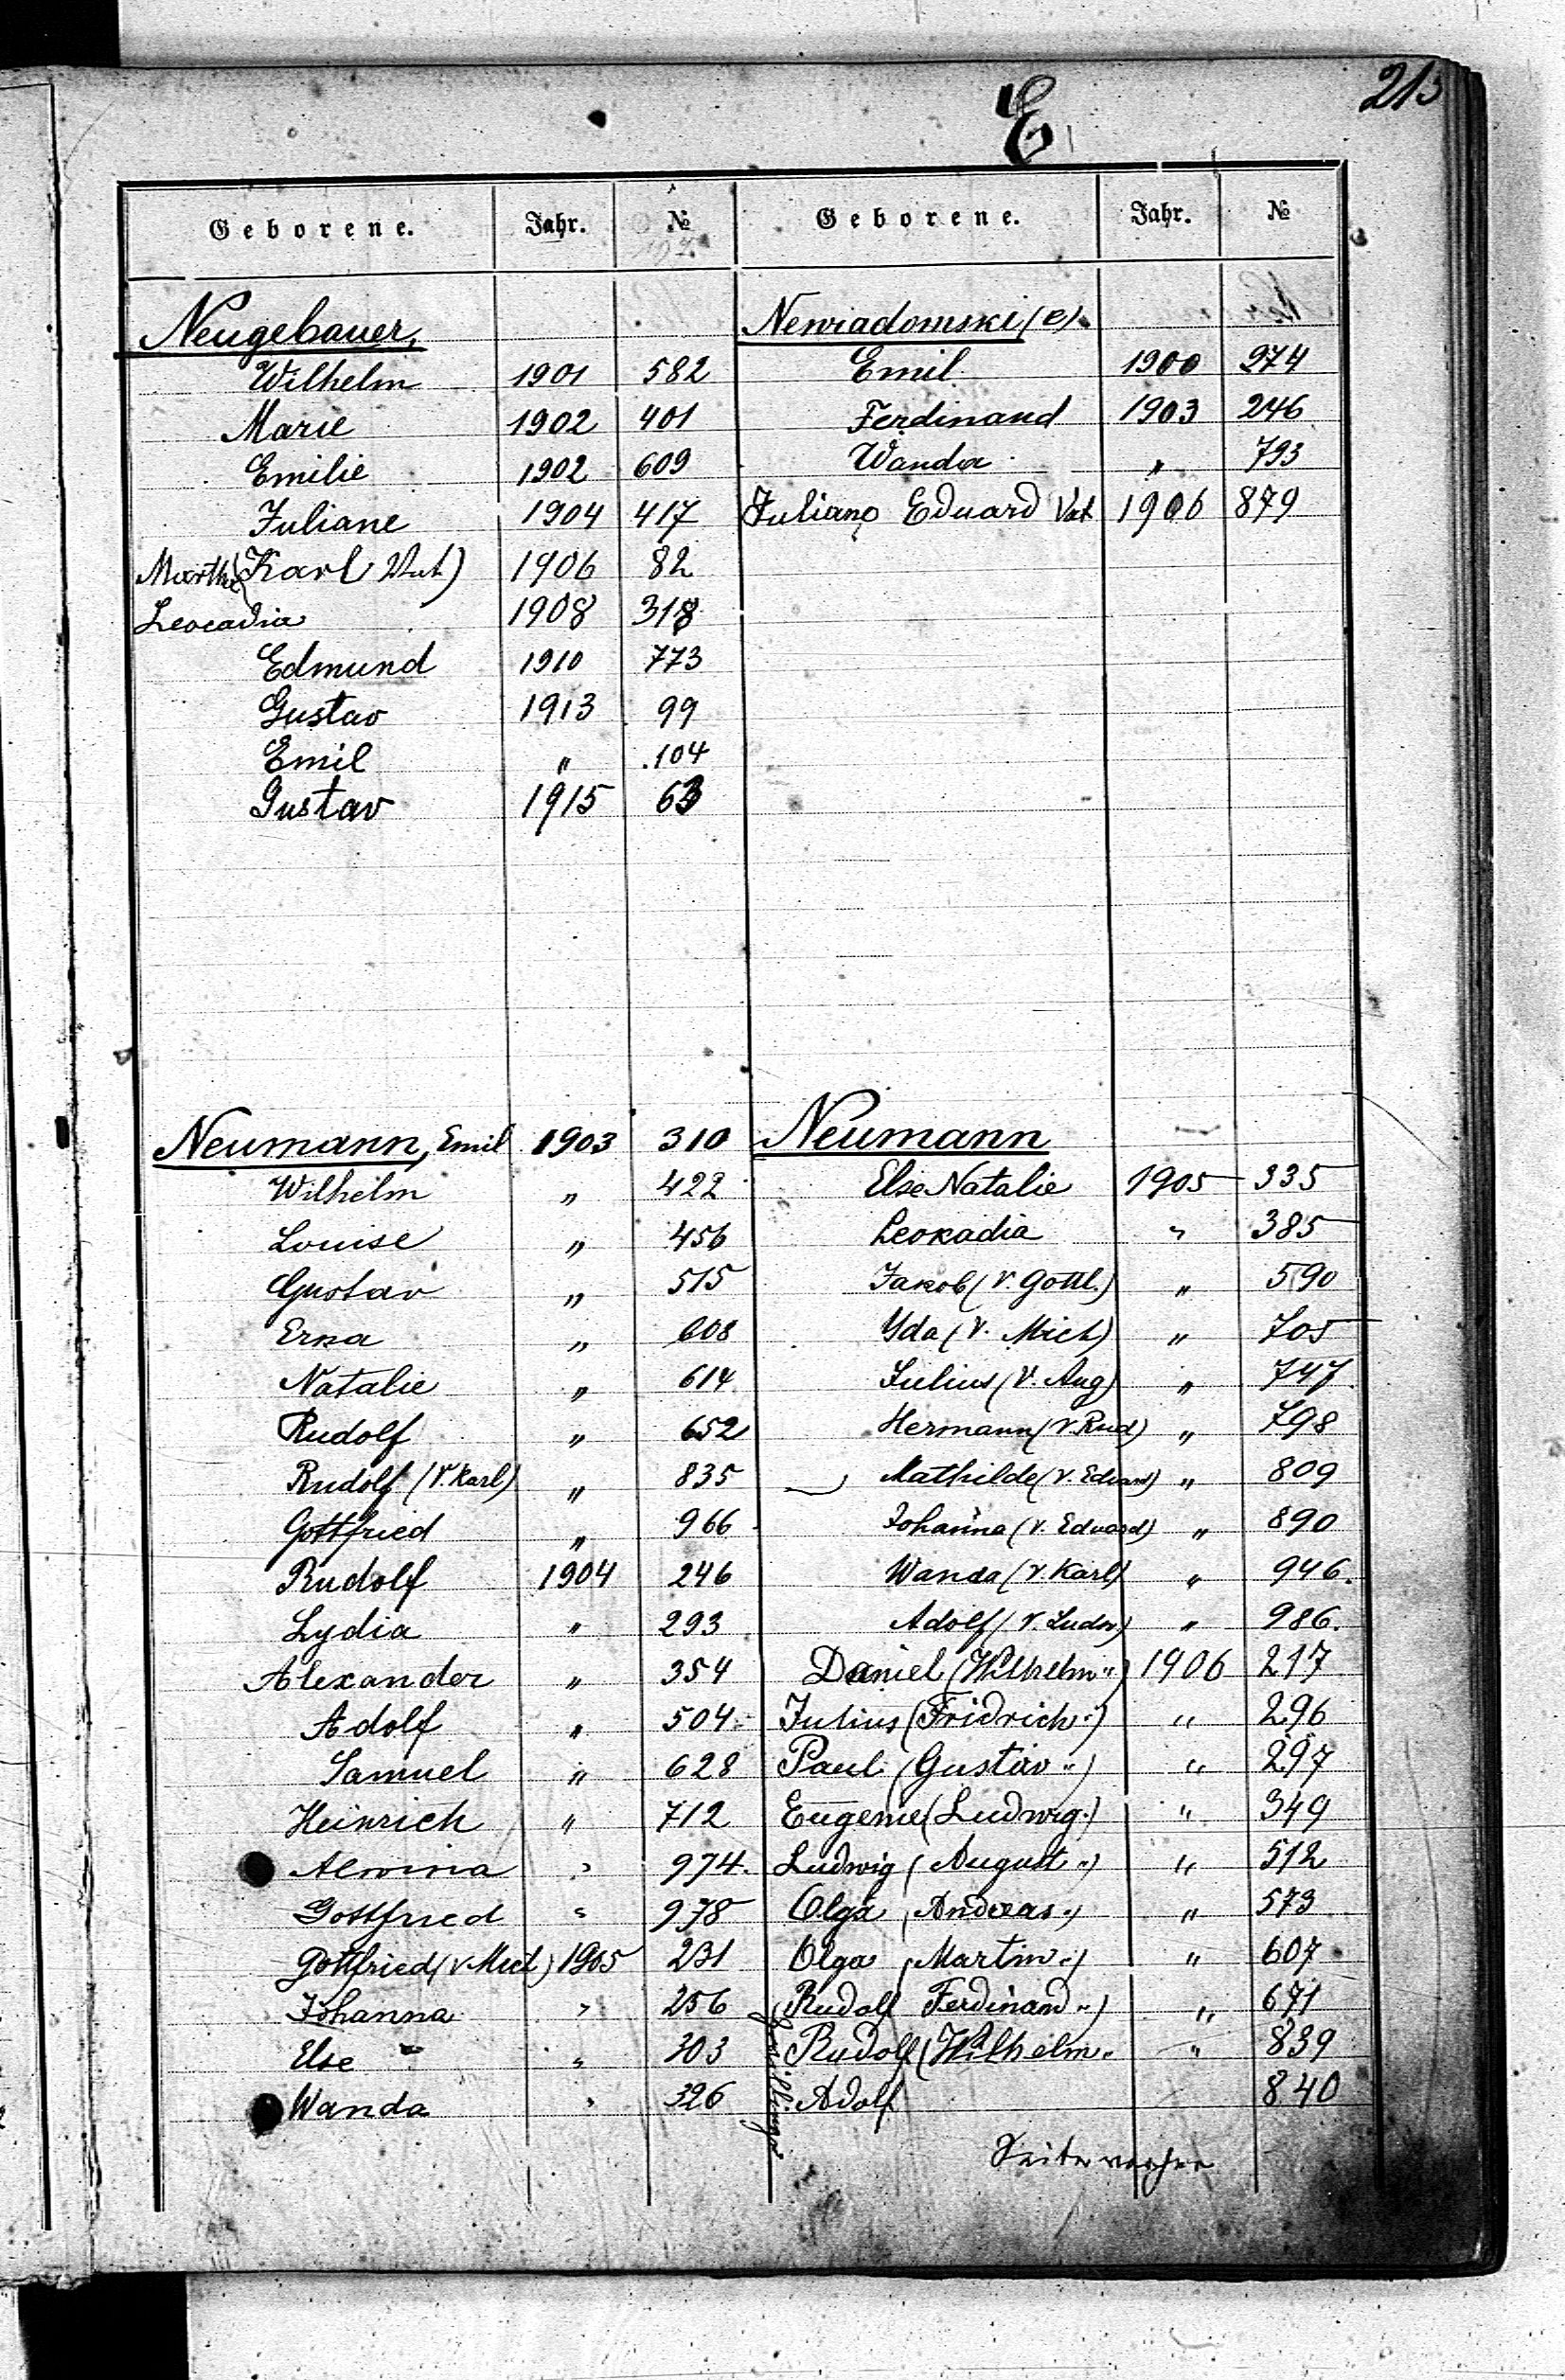 E
213
Geborene. Jahr. № Geborene. Jahr. №
Neugebauer,
Wilhelm 1901 582
Marie 1902 401
Emilie 1902 609
Juliane 1904 417
Marthe (Karl Vat) 1906 82
Leocadia 1908 318
Edmund 1910 773
Gustav 1913 99
Emil " 104
Gustav 1915 63
Newiadomski (e)
Emil 1900 274
Ferdinand 1903 246
Wanda " 793
Juliano Eduard Vat 1906 879
Neumann, Emil 1903 310
Wilhelm " 422
Louise " 456
Gustav " 515
Erna " 608
Natalie " 614
Rudolf " 652
Rudolf (V. Karl) " 835
Gottfried " 966
Rudolf 1904 246
Lydia " 293
Alexander " 354
Adolf " 504
Samuel " 628
Heinrich " 712
Alwina " 974
Gottfried " 978
Gottfried (v Mich) 1905 231
Johanna " 256
Else " 303
Wanda " 326
Neumann
Else Natalie 1905 335
Leokadia " 385
Jakob (V. Gottl.) " 590
Ida (V. Mich) " 705
Julius (V. Aug) " 747
Hermann (V. Rud) " 798
Mathilde (V. Eduard) " 809
Johanna (V. Eduard) " 890
Wanda (V. Karl) " 946.
Adolf (V. Ludw) " 986.
Daniel (Wilhelm ") 1906 217
Julius (Fridrich ") " 296
Paul (Gustav ") " 297
Eugenie (Ludwig ") " 349
Ludwig (August ") " 512
Olga (Andreas ") " 573
Olga (Martin ") " 607
Rudolf Ferdinand ") " 671
Zwillinge
Rudolf (Wilhelm " " 839
Adolf 840
Seite vorher